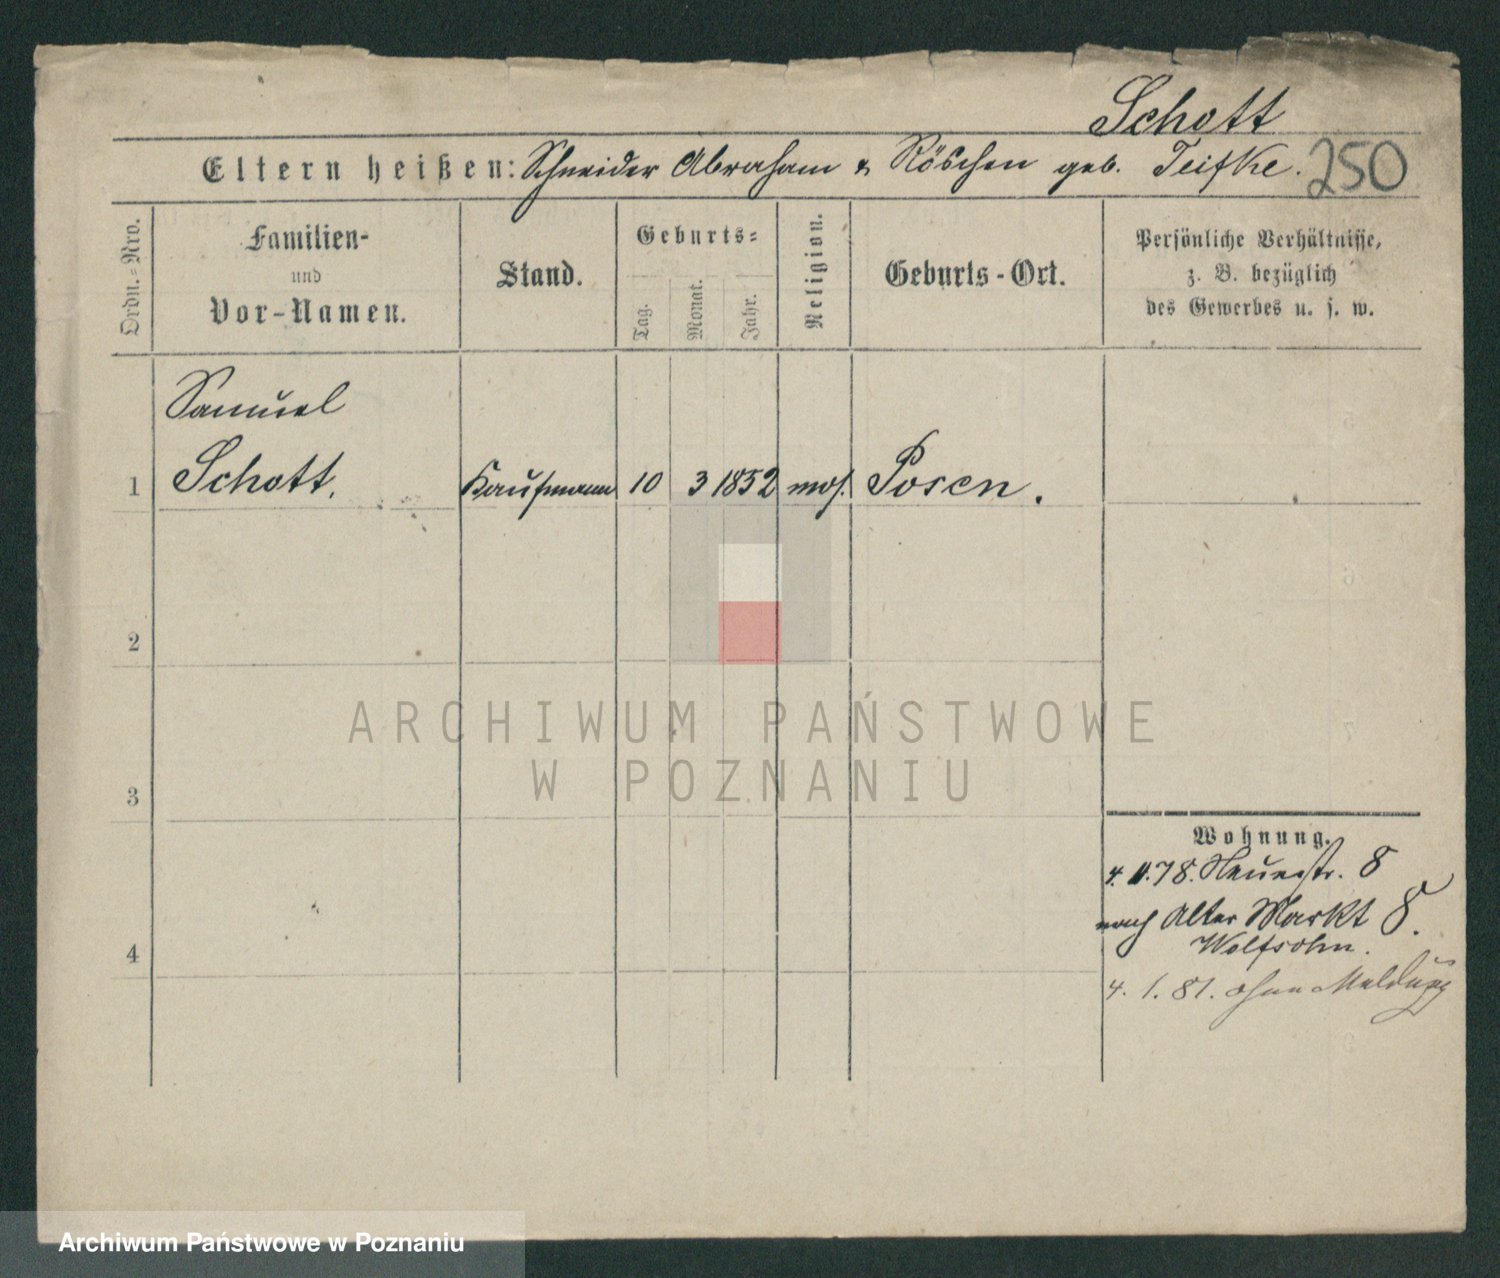 Schott
Eltern heißen: Schneider Abraham & Röschen geb. Teifke.
250
Ordn.-Nro.
Familien-
und
Vor-Namen.
Stand.
Geburts-
Tag.
Monat.
Jahr.
Religion.
Geburts-Ort.
Persönliche Verhältnisse,
z. B. bezüglich
des Gewerbes u. s. w.
Samuel
1 Schott. Kaufmann 10 3 1852 mos. Posen.
2
ARCHIWUM PAŃSTWOWE
W POZNANIU
3
Wohnung.
4. 11.78. Neuestr. 8
nach Alter Markt 8.
Wolfsohn.
4
4. 1. 81. ohne Meldung
Archiwum Państwowe w Poznaniu